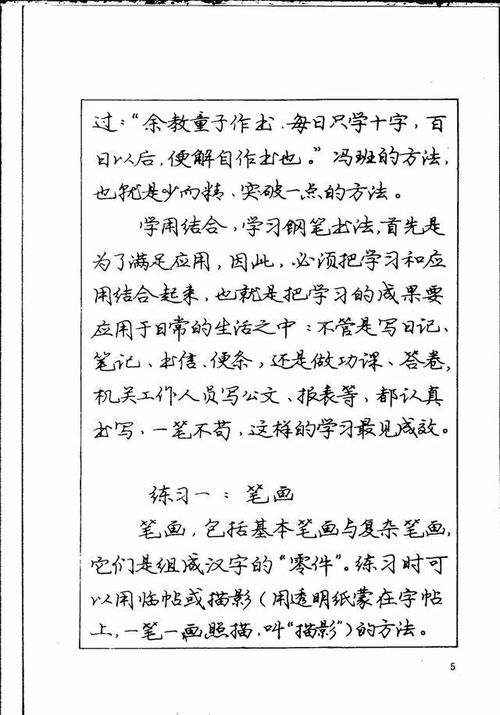 过:“余教童子作书,每日只学十字,百
日以后,便解自作书也。”冯班的方法,
也就是少而精、突破一点的方法。
学用结合,学习钢笔书法,首先是
为了满足应用,因此,必须把学习和应
用结合起来,也就是把学习的成果要
应用于日常的生活之中:不管是写日记、
笔记、书信、便条,还是做功课、答卷,
机关工作人员写公文、报表等,都认真
书写,一笔不苟,这样的学习最见成效。
练习一:笔画
笔画,包括基本笔画与复杂笔画,
它们是组成汉字的“零件”。练习时可
以用临帖或描影(用透明纸蒙在字帖
上,一笔一画照描,叫“描影”)的方法。
5